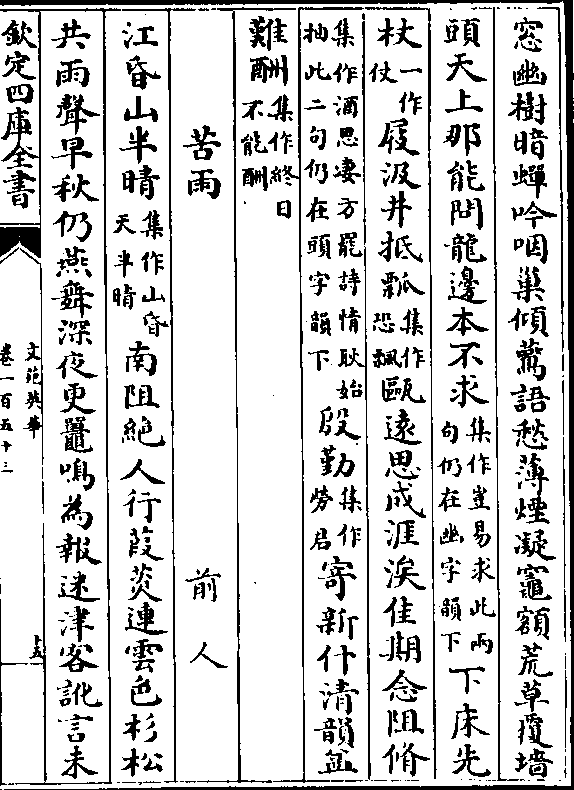 窓幽樹暗蟬吟咽巢傾鷰語愁薄煙凝竈額荒草覆墻
頭天上那能問龍邊本不求集作豈易求此兩句仍在幽字韻下下床先
杖一作仗屐汲井抵瓢集作恐飄甌遠思成涯涘佳期念阻脩
集作酒思凄方罷詩情耿始抽此二句仍在頭字韻下殷勤集作勞君寄新什清韻益
難酬集作終日不能酬
苦雨 前人
江昏山半晴集作山昏天半晴南阻絶人行葭菼連雲色杉松
共雨聲早秋仍燕舞深夜更鼉鳴為報迷津客訛言未
欽定四庫全書
文苑英華
卷一百五十三